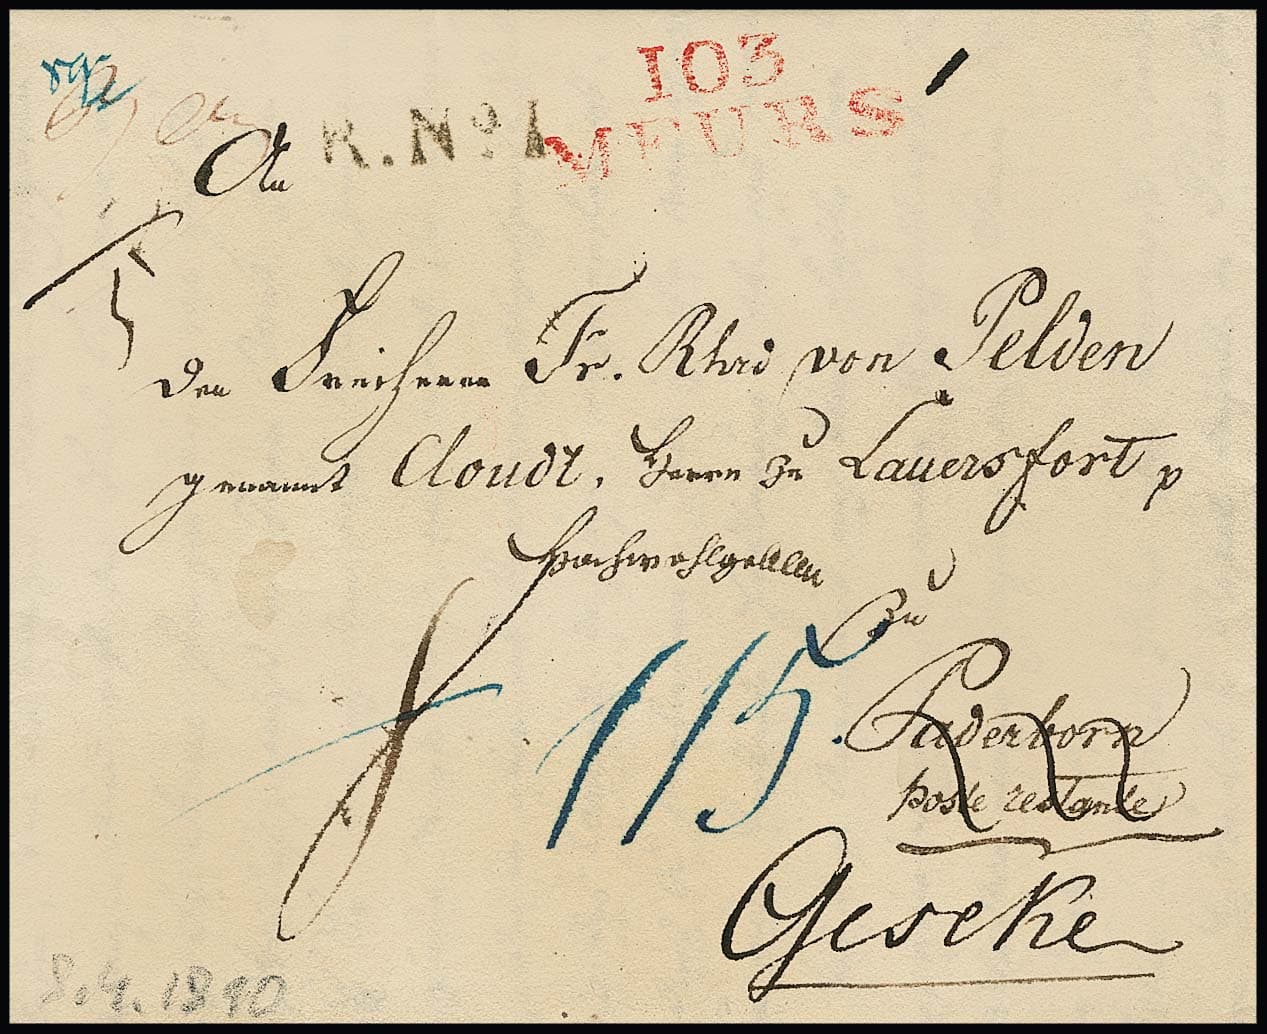 103
R. No 1 MEURS
An
den Freiherrn Fr. Rhrd von Pelden
genannt Cloudt, Herrn zu Lauersfort p
Hochwohlgebohren
zu
115.
Paderborn
poste restante
Geseke
8.4.1810